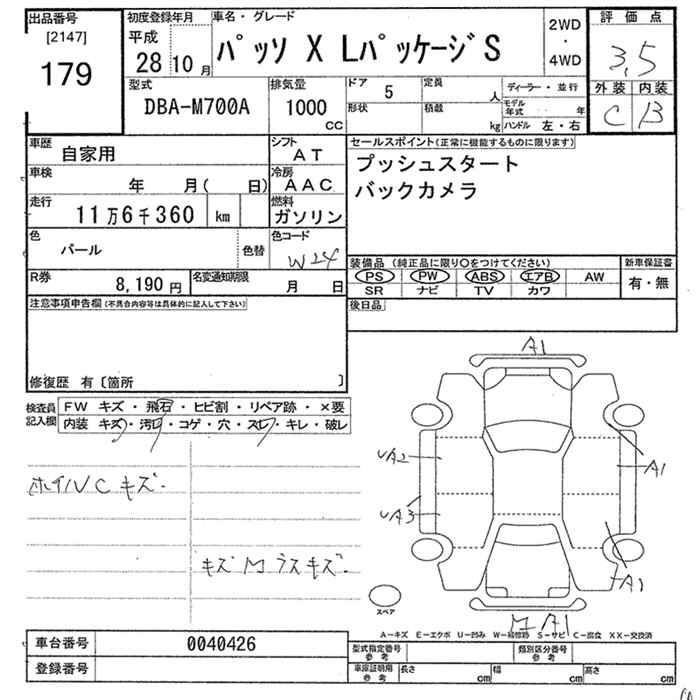 出品番号
[2147]
179
初度登録年月
平成
28 10 月
車名・グレード
パッソ X Lパッケージ S
2WD
・
4WD
評価点
3,5
外装 内装
C B
型式
DBA-M700A
排気量
1000
CC
ドア 5
定員 人
形状
積載 kg
ディーラー・並行
モデル年式 年
ハンドル 左・右
車歴
自家用
シフト
AT
車検
年 月( 日)
冷房
AAC
走行
11万6千360 km
燃料
ガソリン
色
パール
色替
色コード
W24
R券
8,190 円
名変通知期限
月 日
セールスポイント(正常に機能するものに限ります)
プッシュスタート
バックカメラ
装備品 (純正品に限り○をつけてください)
PS PW ABS エアB AW
SR ナビ TV カワ
新車保証書
有・無
後日品
注意事項申告欄(不具合内容等は具体的に記入して下さい)
修復歴 有〔箇所 〕
検査員記入欄
FW キズ・飛石・ヒビ割・リペア跡・×要
内装 キズ・汚レ・コゲ・穴・スレ・キレ・破レ
ホイルC キズ.
キズ M ラスキズ.
A1
A2
A1
A3
A1
M A1
スペア
A-キズ E-エクボ U-凹み W-補修跡 S-サビ C-腐食 XX-交換済
車台番号
0040426
登録番号
型式指定番号
参考
類別区分番号
参考
車庫証明用
参考
長さ cm
幅 cm
高さ cm